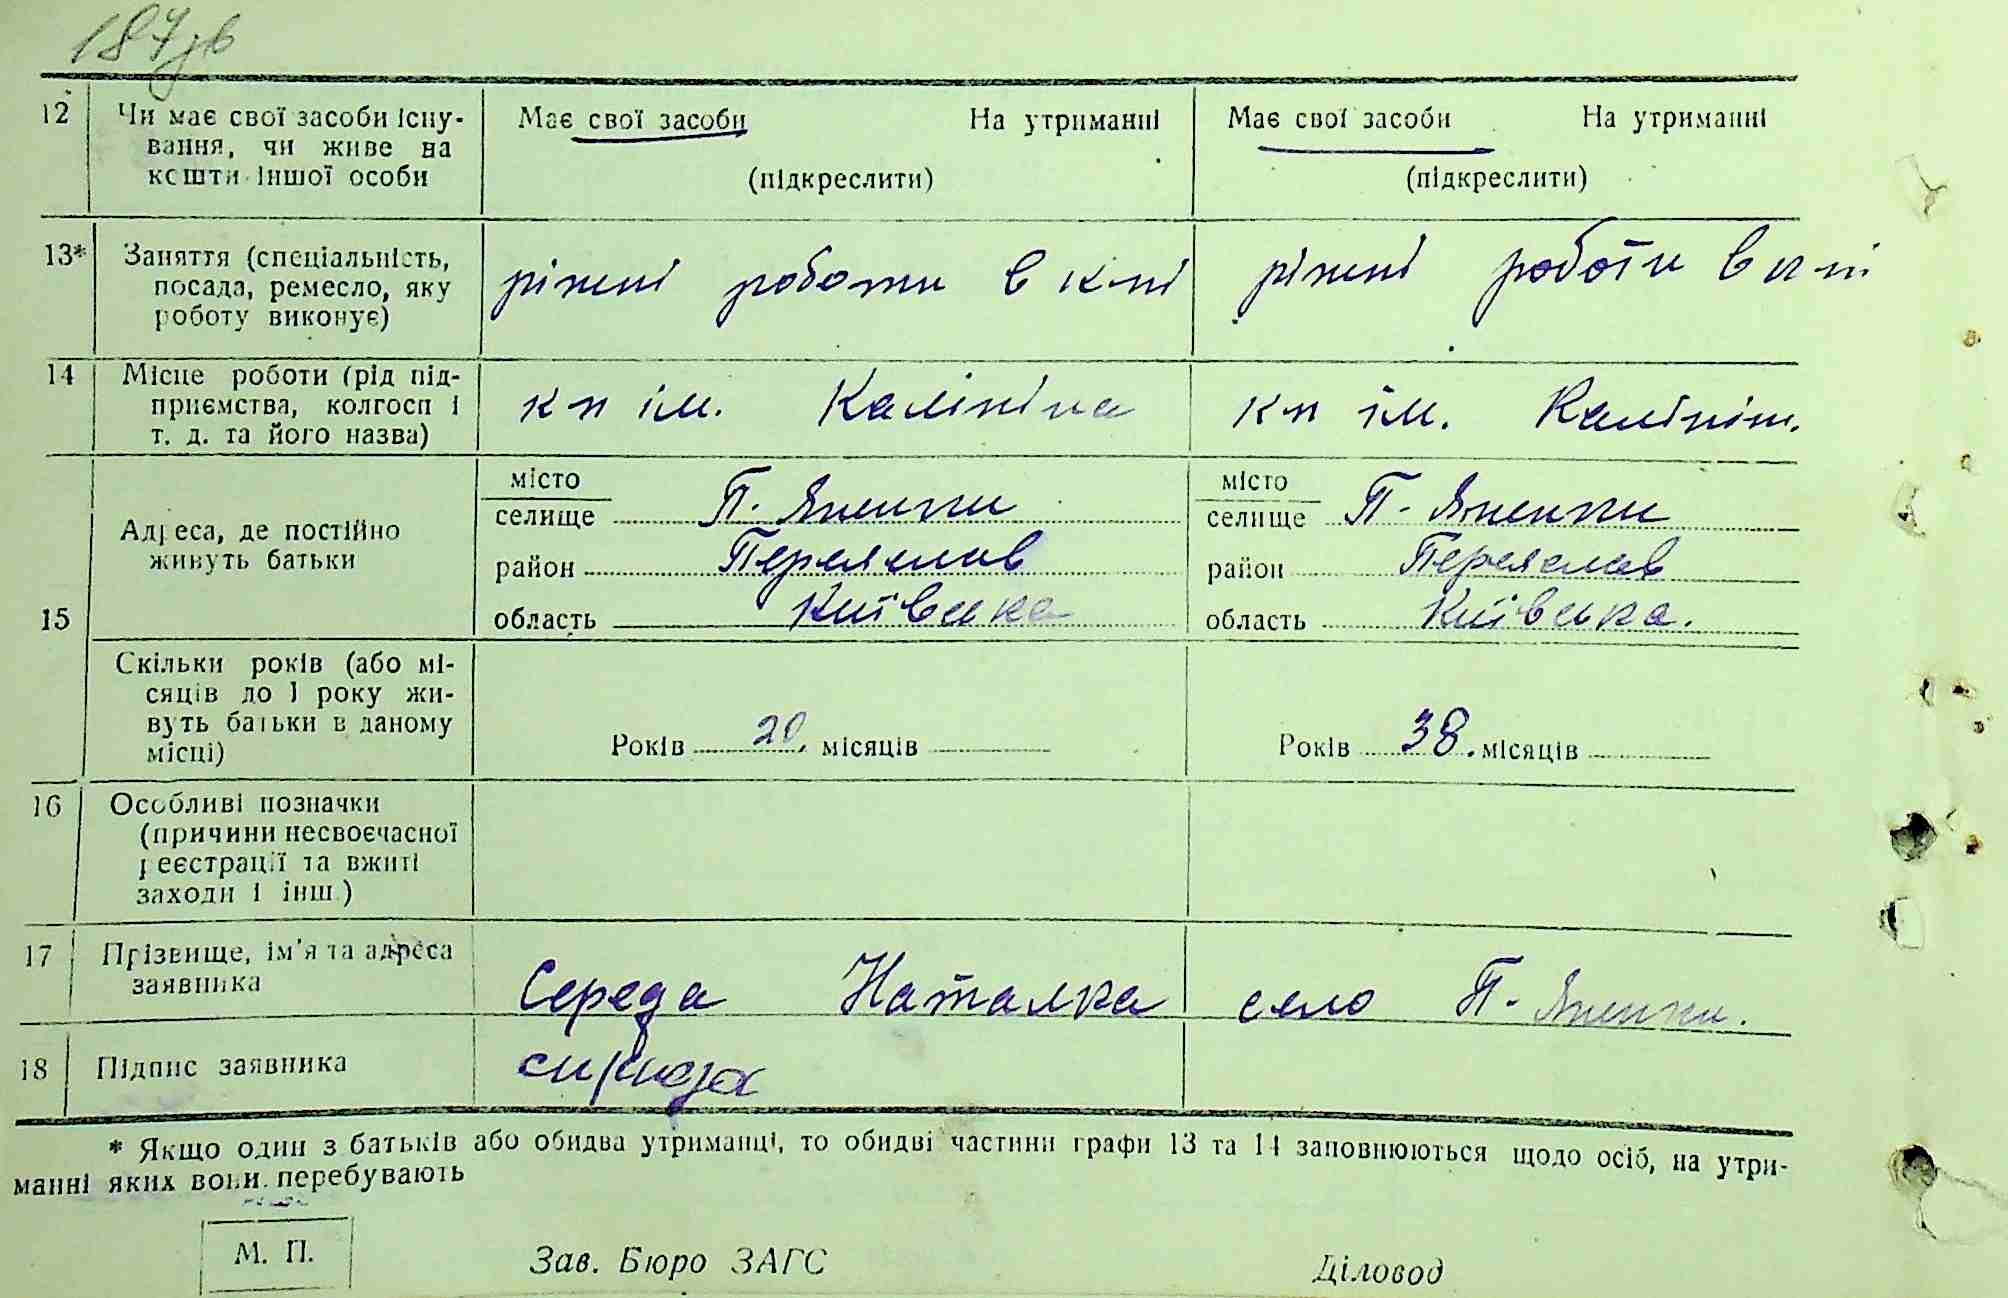 187зв
12 Чи має свої засоби існу- Має свої засоби На утриманні Має свої засоби На утриманні
вання, чи живе на
кошти іншої особи (підкреслити) (підкреслити)
13* Заняття (спеціальність,
посада, ремесло, яку ріжні роботи в кпі ріжні роботи в
роботу виконує)
14 Місце роботи (рід під-
приємства, колгосп і кп ім. Калініна кп ім. Калініна
т. д. та його назва)
місто місто
селище П. Яненки селище П. Яненки
Адреса, де постійно
живуть батьки район Переяслав район Переяслав
15 область Київська область Київська.
Скільки років (або мі-
сяців до 1 року жи-
вуть батьки в даному
місці) Років 20. місяців Років 38. місяців
16 Особливі позначки
(причини несвоєчасної
реєстрації та вжиті
заходи і інш.)
17 Прізвище, ім'я та адреса
заявника Середа Наталка село П. Яненки.
18 Підпис заявника
* Якщо один з батьків або обидва утриманці, то обидві частини графи 13 та 14 заповнюються щодо осіб, на утри-
манні яких вони перебувають
М. П. Зав. Бюро ЗАГС Діловод